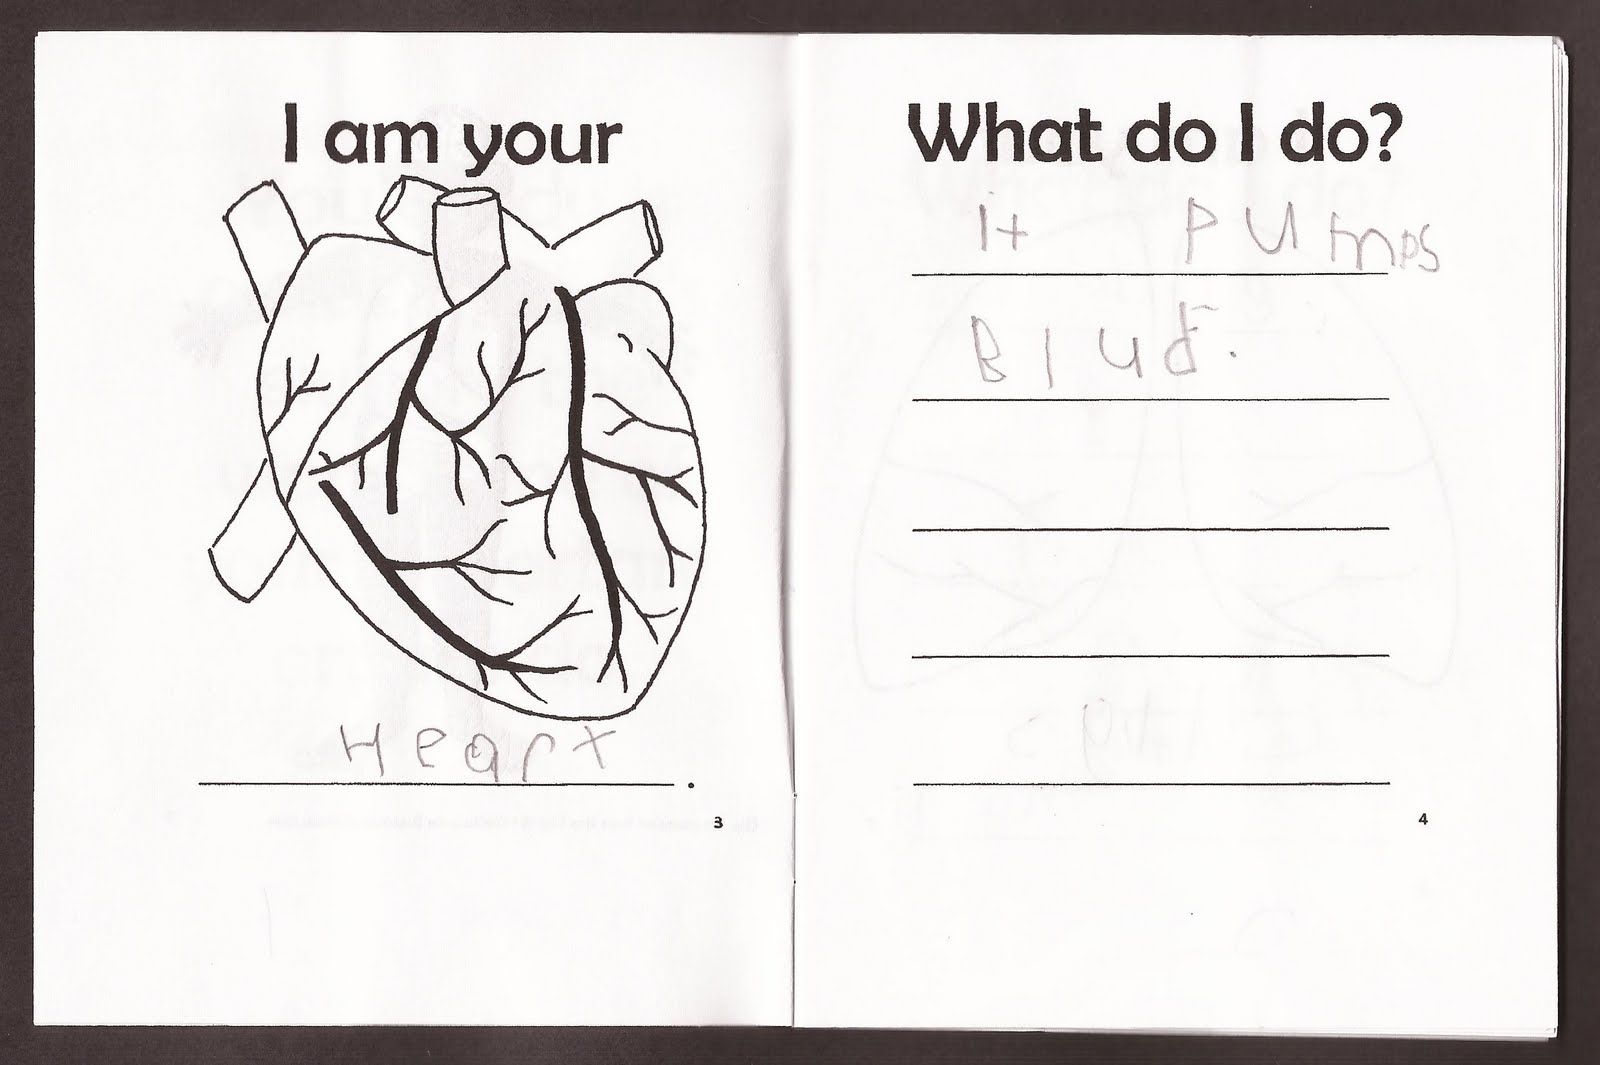 I am your
Heart
.
3
What do I do?
It PUmps
Blud.
4